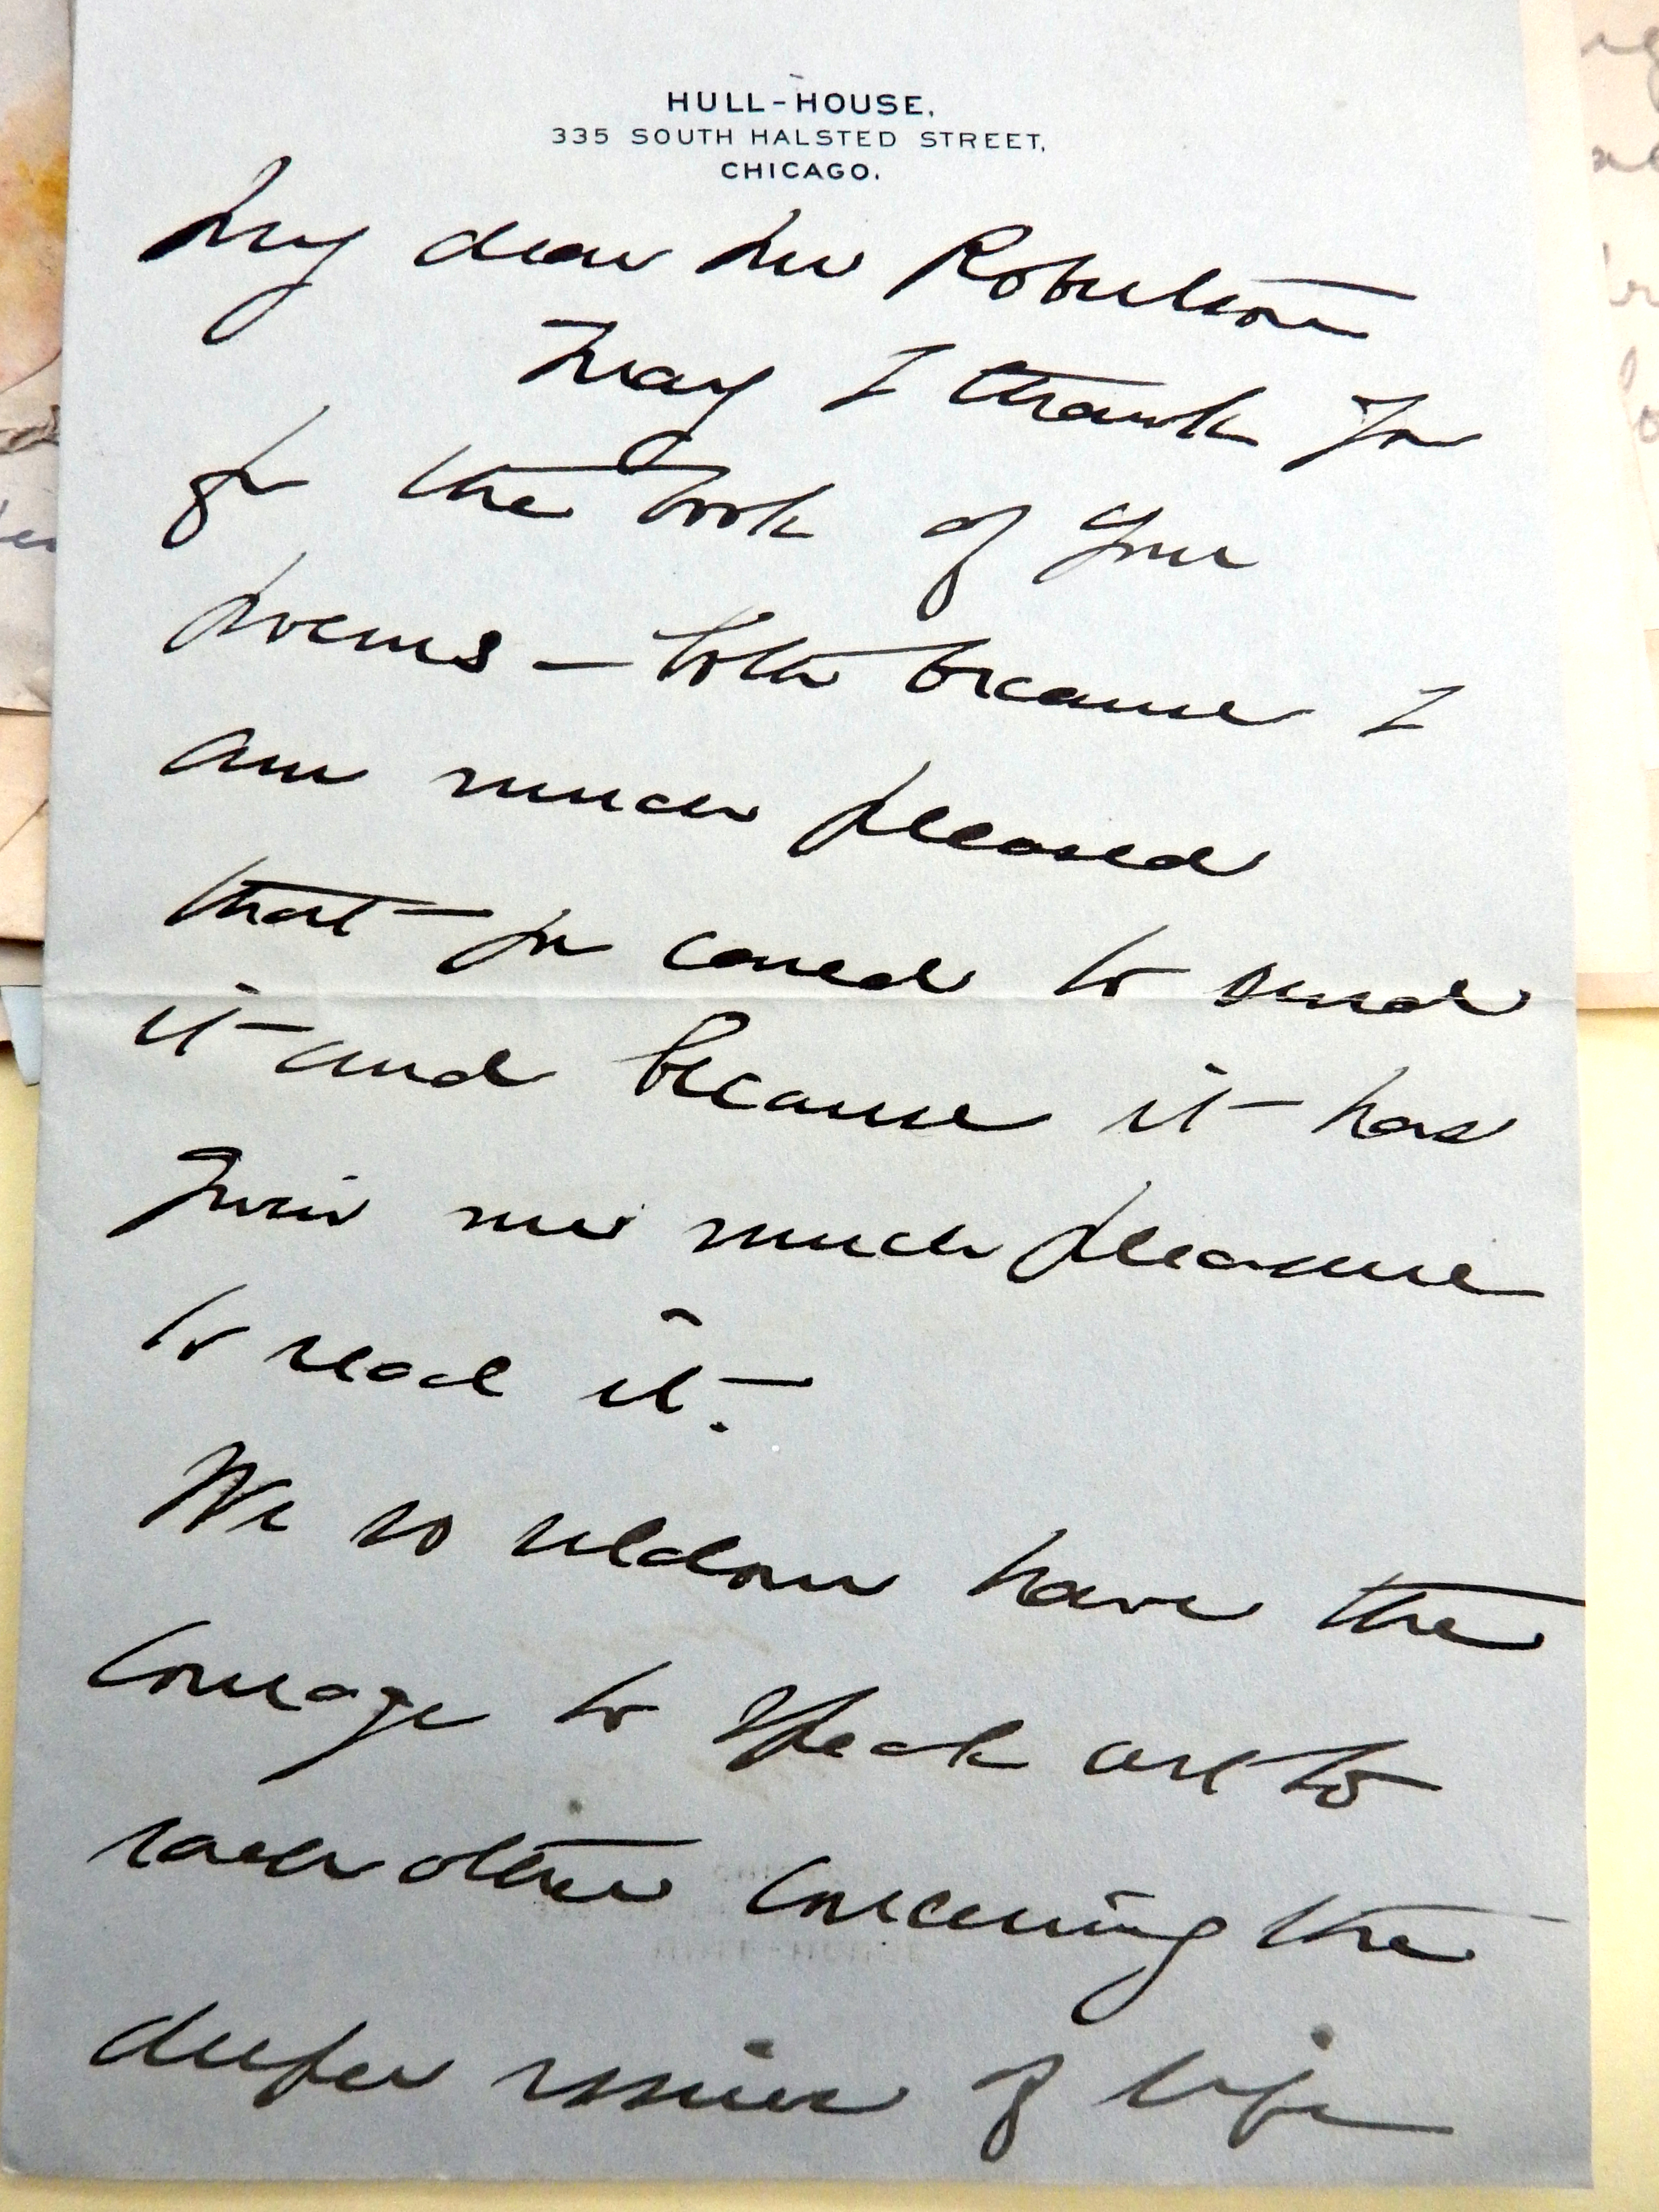 HULL-HOUSE,
335 SOUTH HALSTED STREET,
CHICAGO.
My dear Mr Robertson
May I thank you
for the book of your
poems – both because I
am much pleased
that you cared to send
it and because it has
given me much pleasure
to read it.
We so seldom have the
courage to speak out to
each other concerning the
deeper issues of life